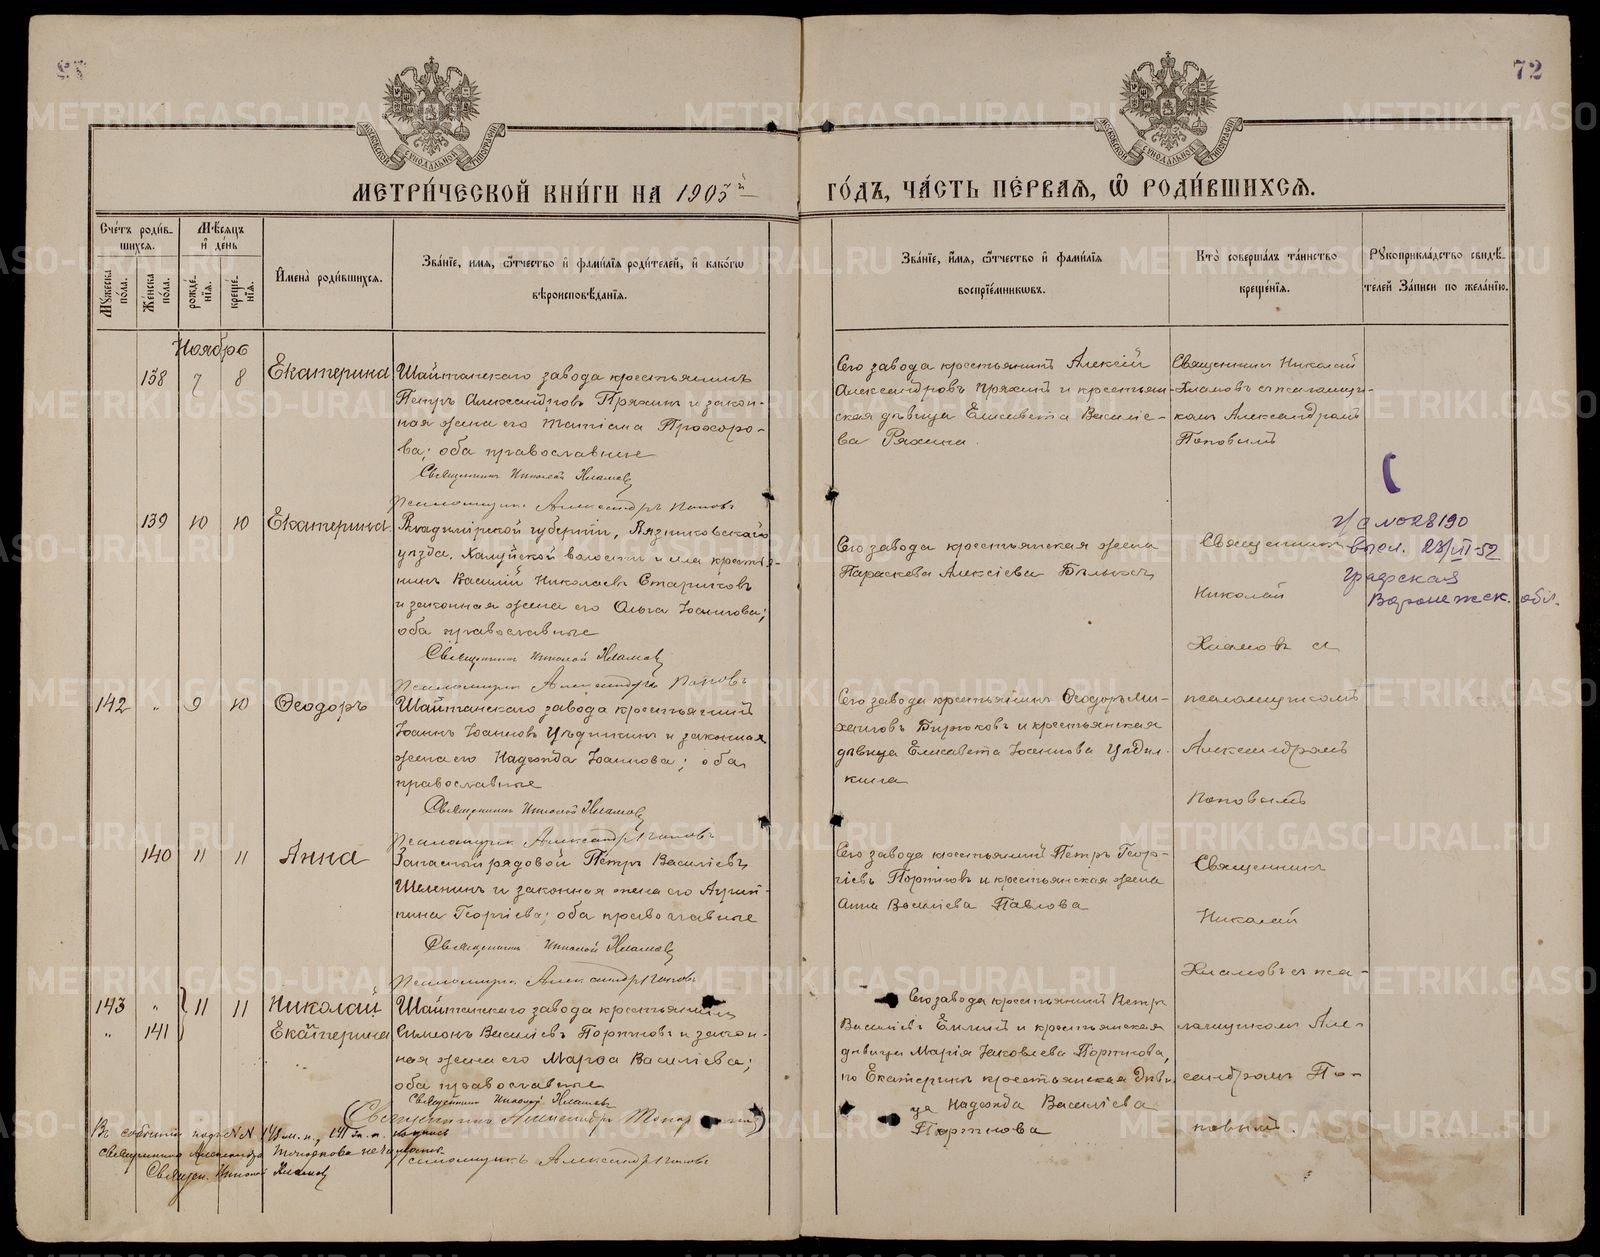 72
МЕТРИ́ЧЕСКОЙ КНИ́ГИ НА 1905й
ГО́ДЪ, ЧА́СТЬ ПЕ́РВАЯ, Ѡ РОДИ́ВШИХСЯ.
Сче́тъ роди́в-
шихся.
Мѣ́сяцъ
и де́нь
Мужеска
пола.
Женска
пола.
рожде́-
нія.
креще́-
нія.
Имена̀ роди́вшихся.
Зва́ніе, имя, ѻтчество и фами́лія роди́телей, и како́гѡ
вѣроисповѣ́данія.
Зва́ніе, и́мя, ѻтчество и фами́лія
воспріе́мникѡвъ.
Кто̀ соверша́лъ та́инство
креще́нія.
Рукоприкла́дство свидѣ́-
телей За́писи по жела́нію.
Ноябрь
138 7 8 Екатерина
Шайтанскаго завода крестьянинъ
Петръ Александровъ Пряхинъ и закон-
ная жена его Татіана Прохоро-
ва; оба православные
Священникъ Николай Хламовъ
Псаломщикъ Александръ Поповъ
Сего завода крестьянинъ Алексѣй
Александровъ Пряхинъ и крестьян-
ская дѣвица Елисавета Василіе-
ва Ряхина.
Священникъ Николай
Хламовъ съ псаломщи-
комъ Александромъ
Поповымъ
139 10 10 Екатерина
Владимірской губерніи, Вязниковскаго
уѣзда, Холуйской волости и села крестья-
нинъ Василій Николаевъ Стариковъ
и законная жена его Ольга Іоаннова;
оба православные
Священникъ Николай Хламовъ
Псаломщикъ Александръ Поповъ
Сего завода крестьянская жена
Параскева Алексіева
Священникъ
Николай
Хламовъ съ
псаломщикомъ
Александромъ
Поповымъ
28190
высл. 28/III-52
Графская
Воронежск. обл.
142 „ 9 10 Ѳеодоръ
Шайтанскаго завода крестьянинъ
Іоаннъ Іоанновъ и законная
жена его Надежда Іоаннова; оба
православные
Священникъ Николай Хламовъ
Псаломщикъ Александръ Поповъ
Сего завода крестьянинъ Ѳеодоръ Ми-
хаиловъ Бирюковъ и крестьянская
дѣвица Елисавета Іоаннова
140 11 11 Анна
Запасный рядовой Петръ Василіевъ
Шеленинъ и законная жена его Агрип-
пина Георгіева; оба православные
Священникъ Николай Хламовъ
Псаломщикъ Александръ Поповъ
Сего завода крестьянинъ Петръ Геор-
гіевъ Портновъ и крестьянская жена
Анна Василіева Павлова
Священникъ
Николай
Хламовъ съ пса-
ломщикомъ Але-
ксандромъ По-
повымъ.
143 „ 11 11 Николай
„ 141 Екатерина
Шайтанскаго завода крестьянинъ
Симеонъ Василіевъ Портновъ и закон-
ная жена его Марѳа Василіева;
оба православные
Священникъ Николай Хламовъ
(Священникъ Александръ
Псаломщикъ Александръ Поповъ
Сего завода крестьянинъ Петръ
Василіевъ и крестьянская
дѣвица Марія Іаковлева Портнова,
по Екатеринѣ крестьянская дѣви-
ца Надежда Василіева
Портнова
Въ событіи подъ №№ 143 м. п., 141 ж. п. подпись
священника Александра
Священ. Николай Хламовъ